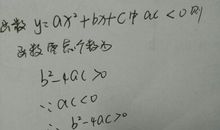 函数 y=ax²+bx+c中 ac<0则
函数零点个数为
b²-4ac>0
∵ac<0
∴b²-4ac>0